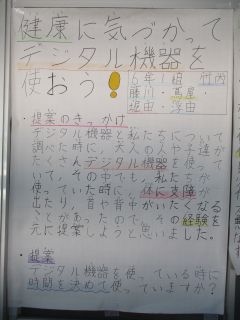 健康に気づかって
デジタル機器を
使おう!
6年1組 竹内
藤川・高屋
堀田・浮田
・提案のきっかけ
デジタル機器と私たちについて
調べた時に、大人の人や子達が
たくさんデジタル機器を使って
いて、その中でも、私たちが
使っていた時に、体に支障が
出たり、首や背中がいたくなる
ことがあったので、その経験を
元に提案しようと思いました。
・提案
デジタル機器を使っている時に
時間を決めて使っていますか?